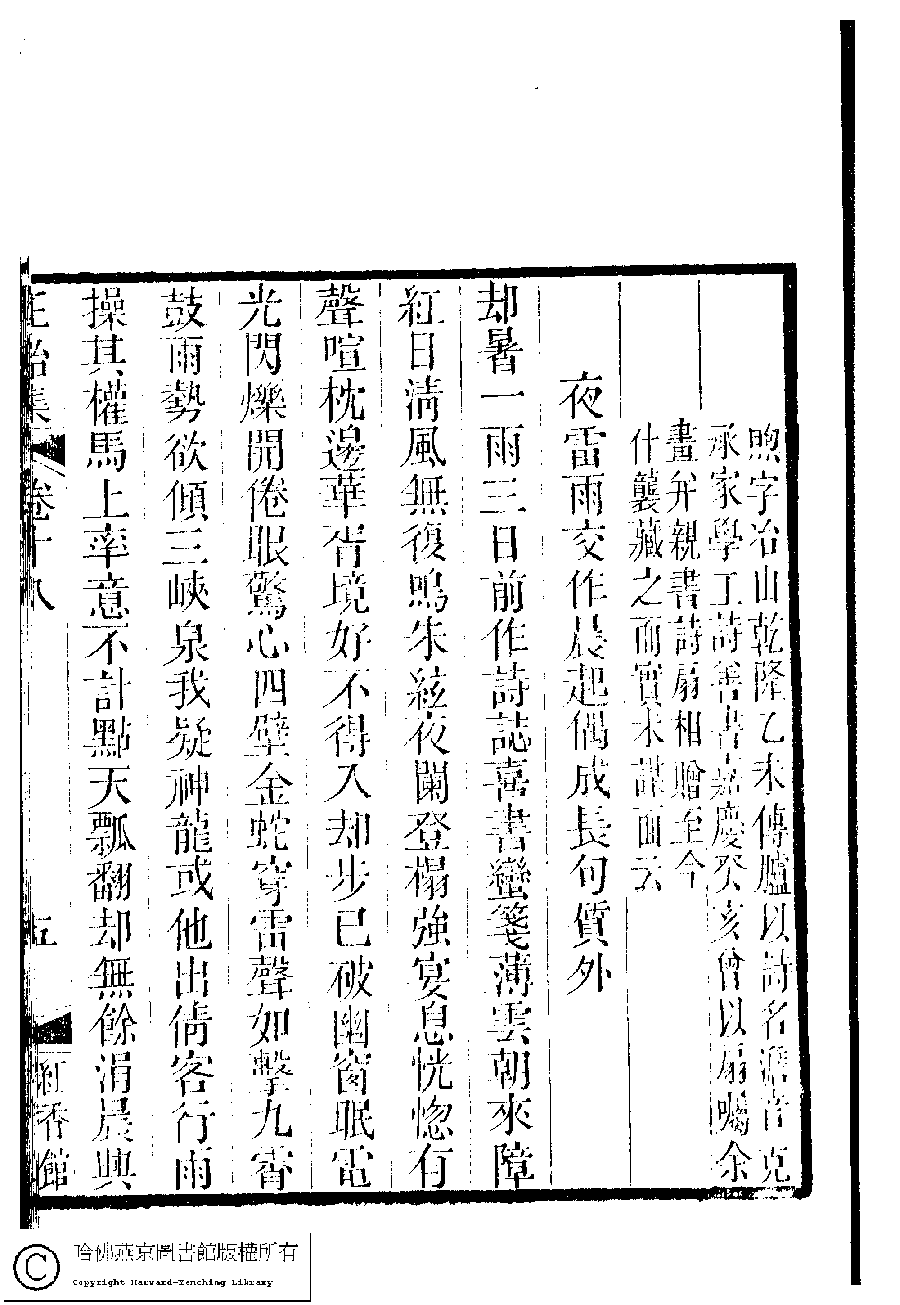 煦字冶山乾隆乙未傳臚以詩名澹音克
承家學工詩善書嘉慶癸亥曾以扇囑余
畫并親書詩扇相贈至今
什襲藏之而實未謀面云
夜雷雨交作晨起偶成長句質外
却暑一雨三日前作詩誌喜書蠻箋薄雲朝來障
紅日清風無復鳴朱絃夜闌登榻強宴息恍惚有
聲喧枕邊華胥境好不得入却步已破幽窗眠電
光閃爍開倦眼驚心四壁金蛇穿雷聲如擊九霄
鼓雨勢欲傾三峽泉我疑神龍或他出倩客行雨
操其權馬上率意不計點天瓢翻却無餘涓晨興
正始集 卷十八 五 紅香館
哈佛燕京圖書館版權所有
Copyright Harvard-Yenching Library